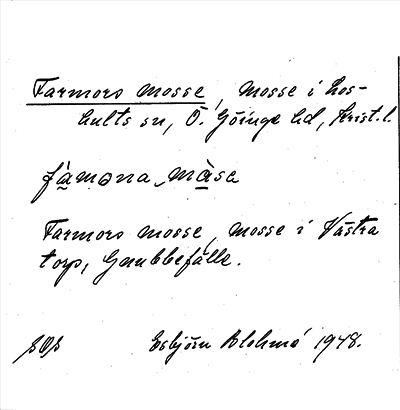 Farmors mosse, mosse i Los-
hults sn, Ö. Göinge hd, Krist. l.
fàmona màse
Farmors mosse, mosse i Västra
torp, Gnubbefälle.
Esbjörn Blohmé 1948.